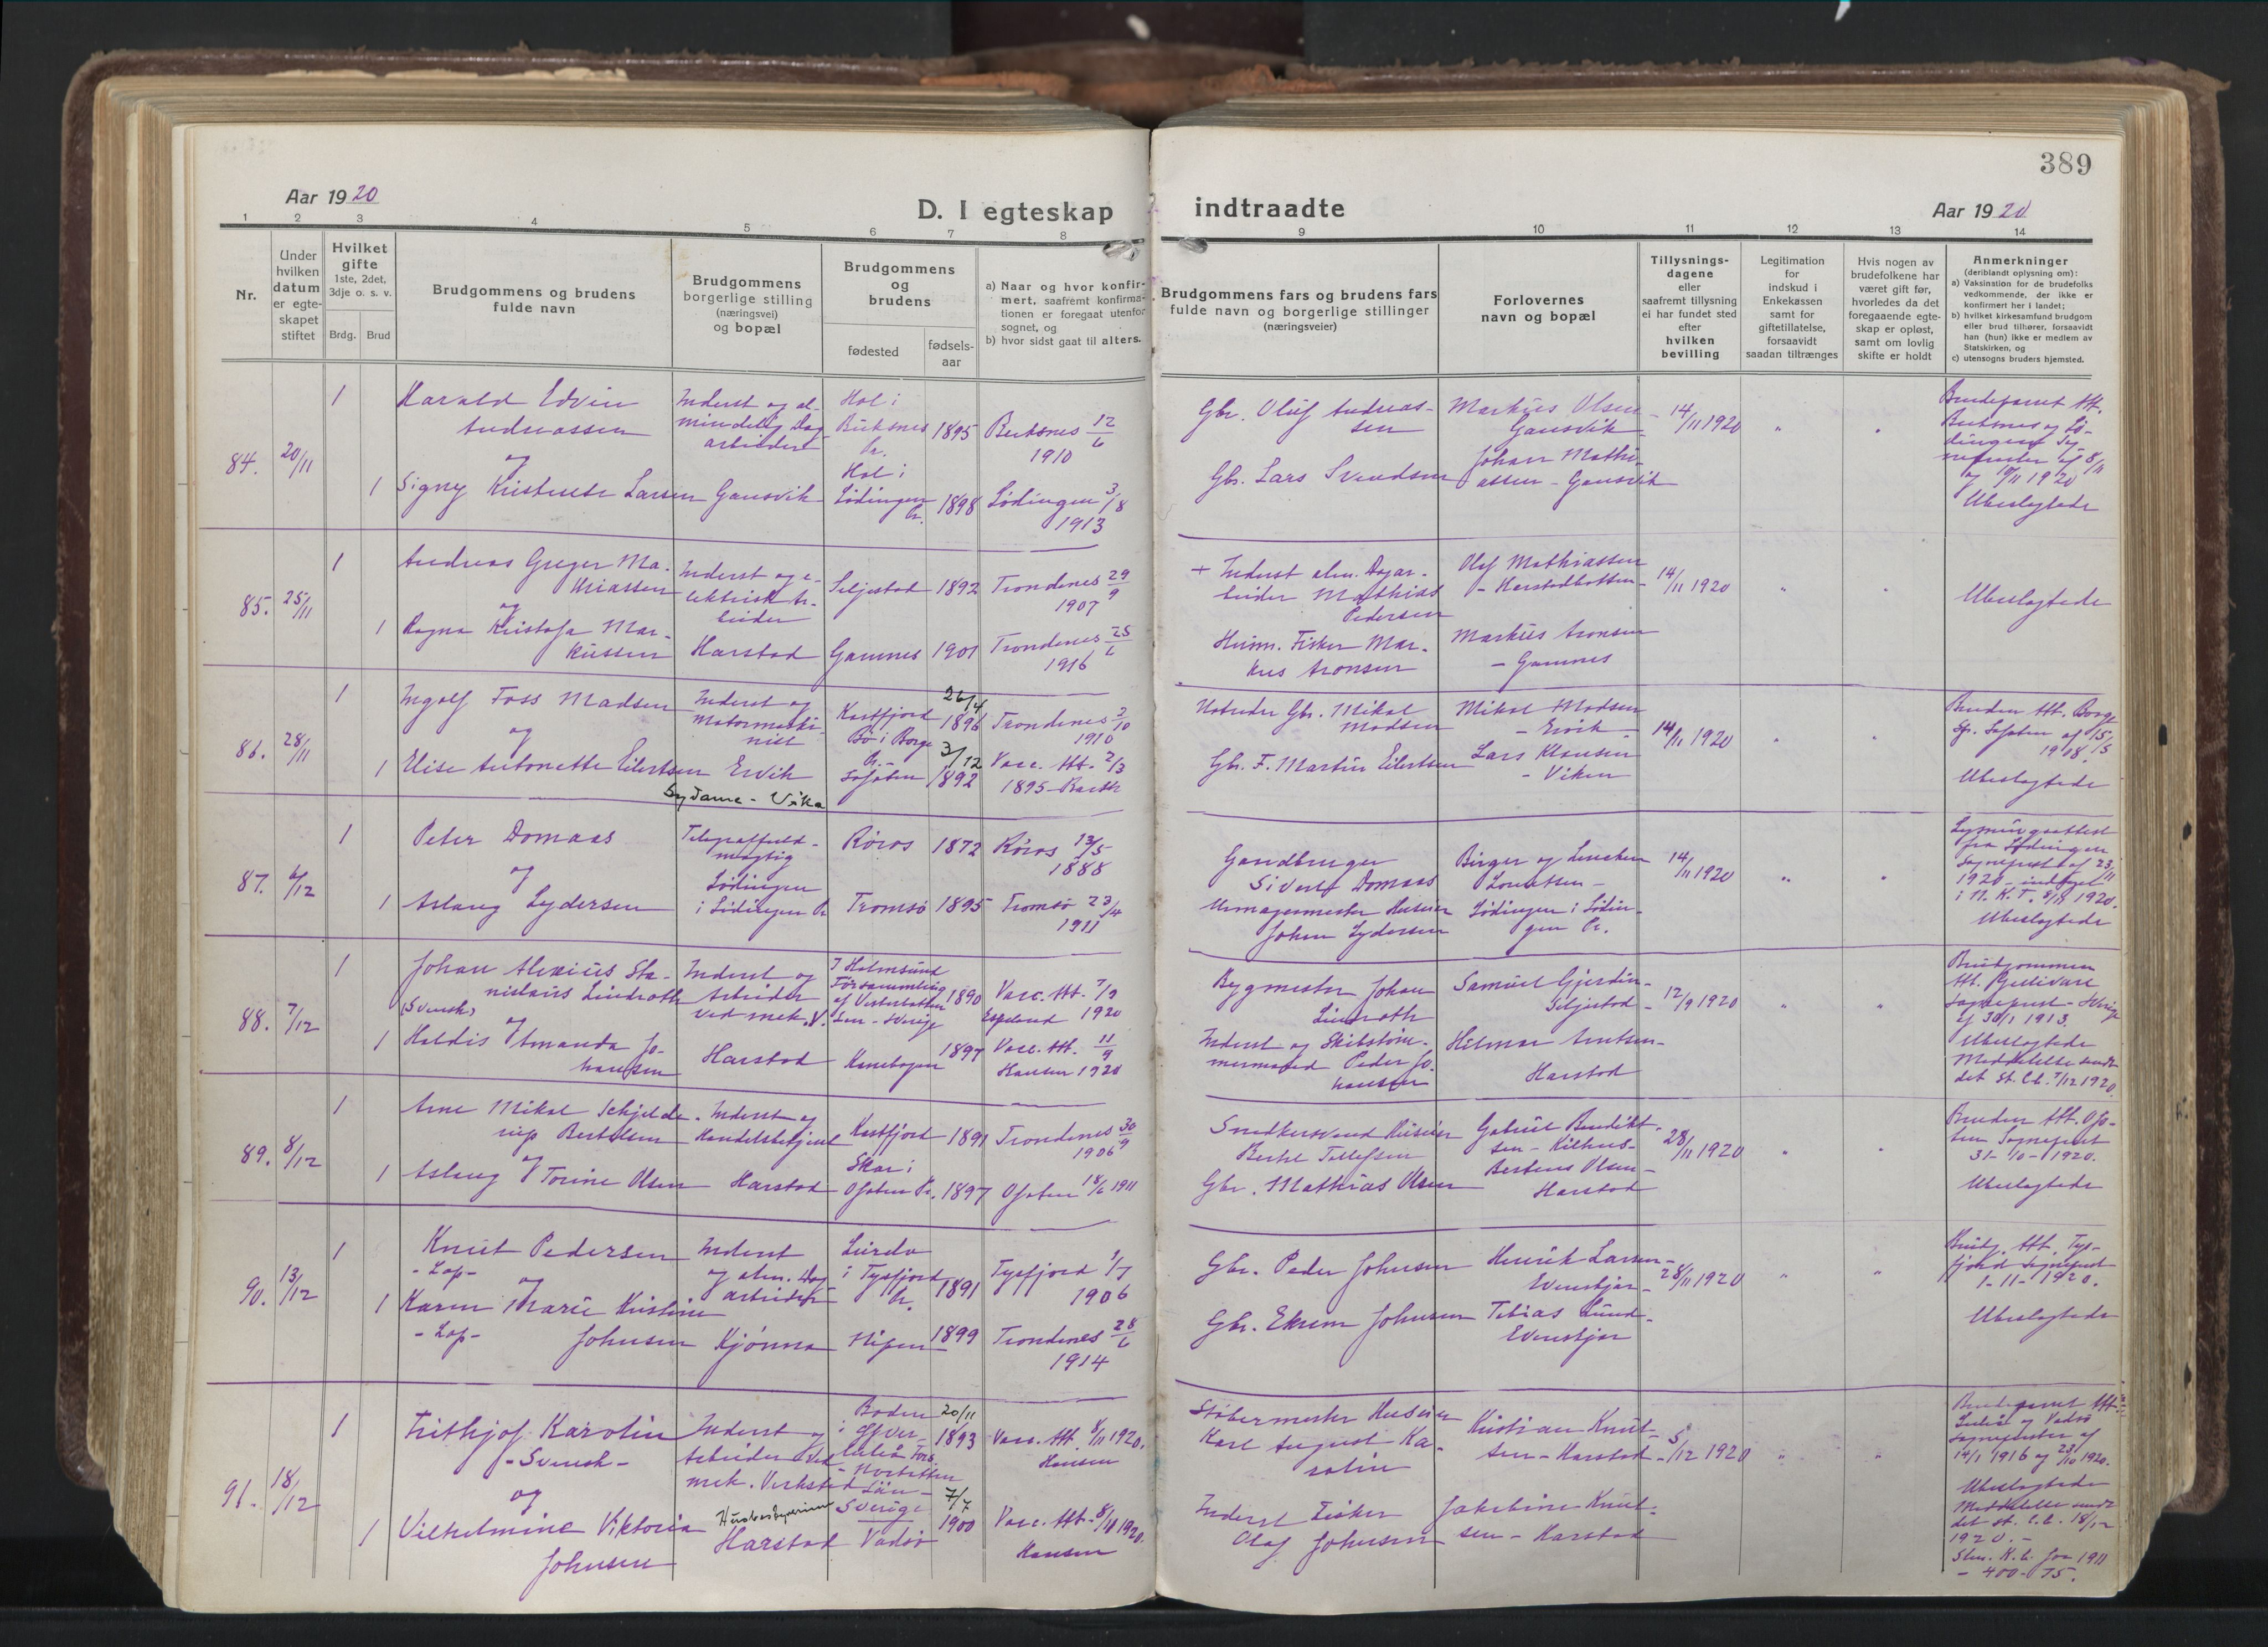 389
Aar 1920
D. I egteskap indtraadte
Aar 1920
1 2 3 4 5 6 7 8 9 10 11 12 13 14
Nr.
Under
hvilken
datum
er egte-
skapet
stiftet
Hvilket
gifte
1ste, 2det,
3dje o. s. v.
Brdg. Brud
Brudgommens og brudens
fulde navn
Brudgommens
borgerlige stilling
(næringsvei)
og bopæl
Brudgommens
og
brudens
fødested
fødsels-
aar
a) Naar og hvor konfir-
mert, saafremt konfirma-
tionen er foregaat utenfor
sognet, og
b) hvor sidst gaat til alters.
Brudgommens fars og brudens fars
fulde navn og borgerlige stillinger
(næringsveier)
Forlovernes
navn og bopæl
Tillysnings-
dagene
eller
saafremt tillysning
ei har fundet sted
efter
hvilken
bevilling
Legitimation
for
indskud i
Enkekassen
samt for
giftetillatelse,
forsaavidt
saadan tiltrænges
Hvis nogen av
brudefolkene har
været gift før,
hvorledes da det
foregaaende egte-
skap er opløst,
samt om lovlig
skifte er holdt
Anmerkninger
(deriblandt oplysning om):
a) Vaksination for de brudefolks
vedkommende, der ikke er
konfirmert her i landet;
b) hvilket kirkesamfund brudgom
eller brud tilhører, forsaavidt
han (hun) ikke er medlem av
Statskirken, og
c) utensogns bruders hjemsted.
84. 20/11
1
Harald Edvin
Andreassen
og
1 Signy Kristense Larsen
Inderst og al-
mindelig Dag-
arbeider
Gausvik
Hol i
Buksnes
Pr.
1895
Hol i
Lødingen
Pr.
1898
Buksnes 12/6
1910
Lødingen 3/8
1913
Gbr. Oluf Andreas-
sen
Gbr. Lars Svendsen
Markus Olsen -
Gausvik
Johan Mathi-
assen - Gausvik
14/11 1920
Brudeparret Att.
Buksnes og Lø-
dingen
8/11
og 10/11 1920
Ubeslegtede
85. 25/11
1
Andreas Greger Ma-
thiassen
og
1 Ragna Kristofa Mar-
kussen
Inderst og e-
lektrisk Ar-
beider
Harstad
Seljestad 1892
Gamnes 1901
Trondenes 29/9
1907
Trondenes 25/6
1916
+ Inderst alm. Dagar-
beider Mathias
Pedersen
Husm. Fisker Mar-
kus Aronsen
Olaf Mathiassen
- Harstadbotten
Markus Aronsen
- Gamnes
14/11 1920
Ubeslegtede
86. 28/11
1
Ingolf Foss Madsen
og
1 Elise Antonette Eilertsen
Inderst og
Motormaski-
nist
Ervik
Sydame - Vika
Kastfjord
26/4
1896
Bø i Borge
Pr. -
Lofoten
3/12
1892
Trondenes 2/10
1910
Vacc. Att. 2/3
1895 - Barth
Gbr. Mikal
Madsen
Gbr. F. Martin Eilertsen
Mikal Madsen
- Ervik -
Lars Klausen
- Viken
14/11 1920
Bruden Att. Borge
Spr. Lofoten af 15/5
1908.
Ubeslegtede
87. 4/12
1
Peter Domaas
og
1 Aslaug Lydersen
Telegraffuld-
mægtig
Lødingen
i Lødingen Pr.
Røros 1872
Tromsø 1895
Røros 13/5
1888
Tromsø 23/4
1911
Gaardbruger
Sivert Domaas
Urmagermester Huseier
Johan Lydersen
Birger og
Lauritsen -
Lødingen i Lødin-
gen Pr.
14/11 1920
Lysningsattest
fra Lødingen
Sogneprest af 23/11
1920 -
1920.
Ubeslegtede
88. 7/12
1
Johan Alexius Sta-
nislaus Lindroth
(Svensk) og
1 Haldis Amanda Jo-
hansen
Inderst og
Arbeider
ved mek. V.
Harstad
I Holmsund
Forsamling
af Vesterbotten
Len - Sverige
1890
Kanebogen 1897
Vacc. Att. 7/9
1920
Vacc. Att. 11/9
Hansen 1920
Bygmester Johan
Lindroth
Inderst og Skibstøm-
mermand Peder Jo-
hansen
Samuel Gjerdin -
Seljestad -
Hilmar Arntsen -
Harstad
12/9 1920
Brudgommen
Att. Gellivare
Sogneprest - Sverige
af 30/1 1913.
Ubeslegtede
Meddelelse sendt
det St. C.b. 7/12 1920.
89. 8/12
1
Arne Mikal Schjelde-
rup Bertelsen
og
1 Aslaug Torine Olsen
Inderst og
Handelsbetjent
Harstad
Kastfjord 1891
Skar i
Ofoten Pr. 1897
Trondenes 30/9
1906
Ofoten 18/6 1911
Snedkersvend Huseier
Bertel Tollefsen
Gbr. Mathias Olsen
Gabriel Benedikt-
sen - Kilhus -
Bertens Olsen -
Harstad
28/11 1920
Bruden Att. Ofo-
ten Sogneprest
31-10-1920.
Ubeslegtede
90. 13/12
1
Knut Pedersen
- Lap - og
1 Karen Marie Kristine
- Lap - Johnsen
Inderst
og alm. Dag-
arbeider
Kjønna
i Tysfjord
Pr. 1891
1899
Tysfjord 1/7
1906
Trondenes 28/6
1914
Gbr. Peder Johnsen
Gbr. Johnsen
Henrik Larsen -
Evenskjær -
Tobias Lund -
Evenskjær
28/11 1920
Brudg. Att. Tys-
fjord Sogneprest
1-11-1920.
Ubeslegtede
91. 18/12
1
Frithjof Karolin
- Svensk -
og
1 Vilhelmine Viktoria
Johnsen
Inderst og
Arbeider ved
mek. Verksted
Husbestyrerinne
Harstad
Boden
i
Luleå Fors.
Norbotten
Län -
Sverige
20/11
1893
Vadsø
7/7
1900
Vacc. Att. 8/11 1920.
Hansen
Vacc. Att. 8/11 1920.
Hansen
Støbermester Huseier
Karl August Ka-
rolin
Inderst Fisker
Olaf Johnsen
Kristian Knut-
sen - Harstad -
Jakobine Knut-
sen - Harstad
5/12 1920
Brudeparret Att.
Luleå og Vadsø
Sogneprester af
14/1 1916 og 23/10 1920.
Ubeslegtede
Meddelelse sendt
det st. C.b. 18/12
1920. -